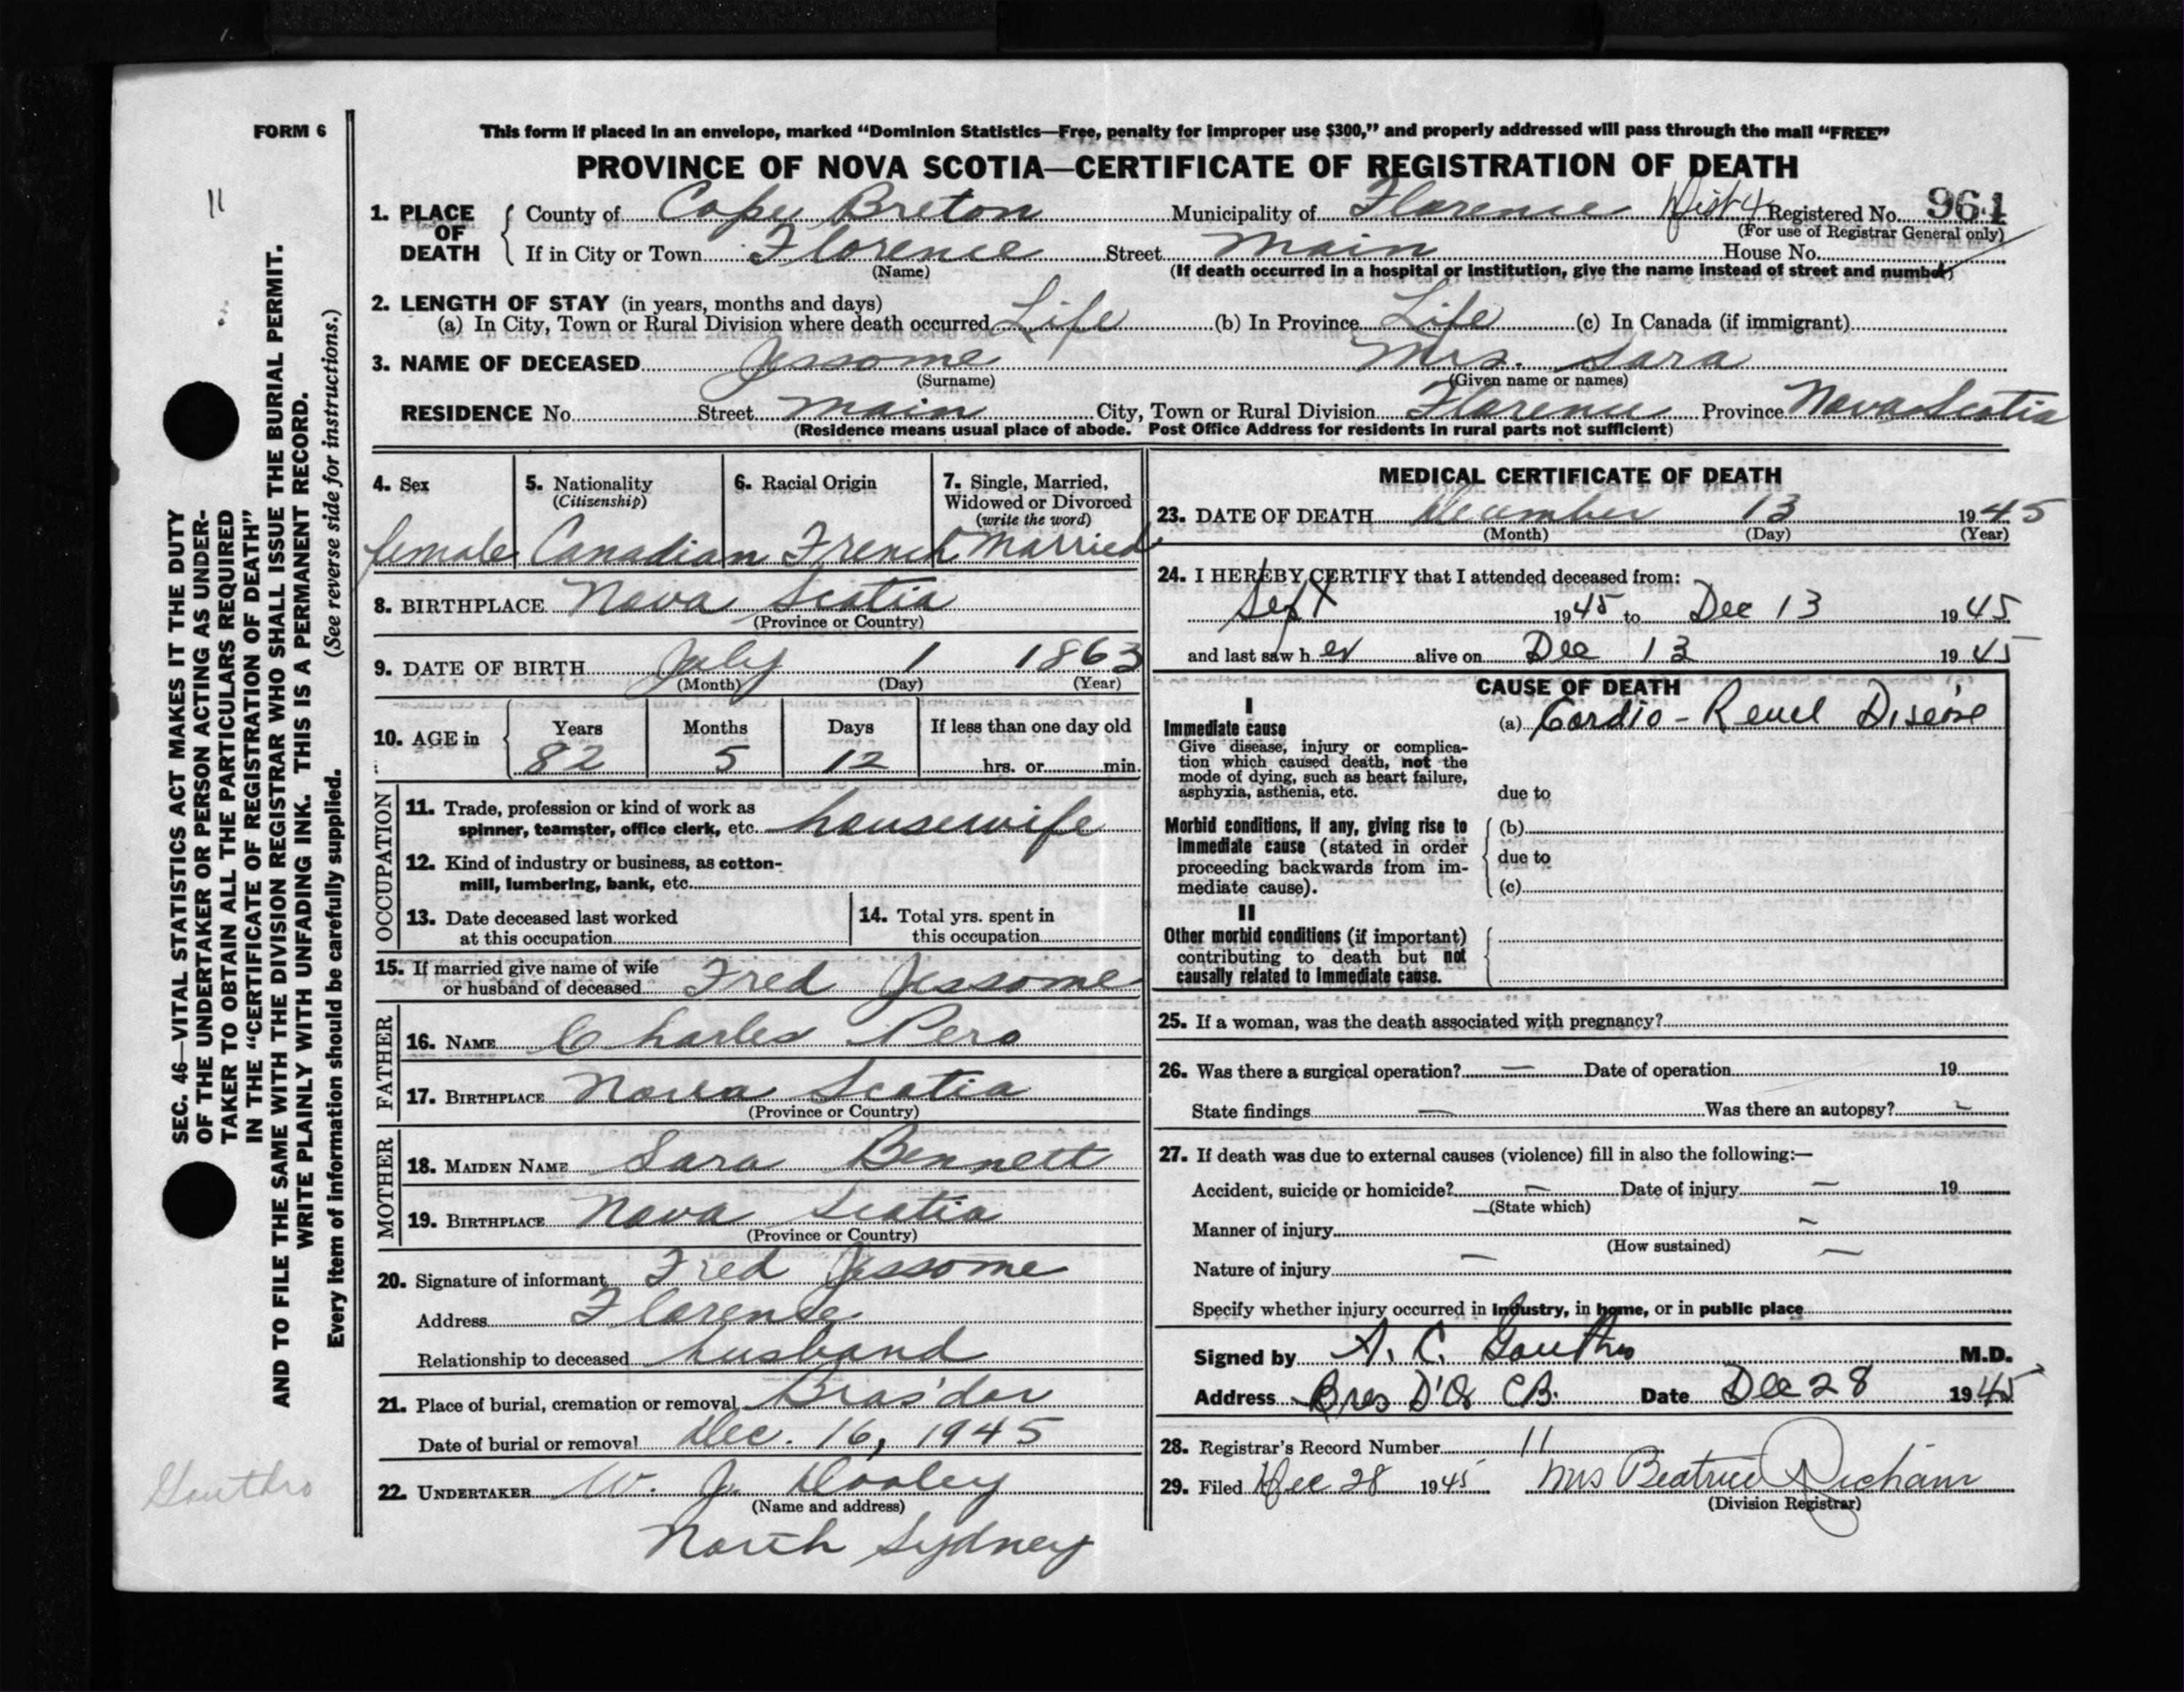 FORM 6
This form if placed in an envelope, marked “Dominion Statistics—Free, penalty for improper use $300,” and properly addressed will pass through the mail “FREE”
PROVINCE OF NOVA SCOTIA—CERTIFICATE OF REGISTRATION OF DEATH
1. PLACE OF DEATH
County of Cape Breton Municipality of Florence Dist 4 Registered No. 961
(For use of Registrar General only)
If in City or Town Florence Street Main House No.
(Name) (If death occurred in a hospital or institution, give the name instead of street and number)
2. LENGTH OF STAY (in years, months and days)
(a) In City, Town or Rural Division where death occurred Life (b) In Province Life (c) In Canada (if immigrant)
3. NAME OF DECEASED Jessome Mrs. Sara
(Surname) (Given name or names)
RESIDENCE No. Street Main City, Town or Rural Division Florence Province Nova Scotia
(Residence means usual place of abode. Post Office Address for residents in rural parts not sufficient)
4. Sex
female
5. Nationality
(Citizenship)
Canadian
6. Racial Origin
French
7. Single, Married,
Widowed or Divorced
(write the word)
Married
8. BIRTHPLACE Nova Scotia
(Province or Country)
9. DATE OF BIRTH July 1 1863
(Month) (Day) (Year)
10. AGE in
Years Months Days If less than one day old
82 5 12 hrs. or min.
OCCUPATION
11. Trade, profession or kind of work as
spinner, teamster, office clerk, etc. housewife
12. Kind of industry or business, as cotton-
mill, lumbering, bank, etc.
13. Date deceased last worked
at this occupation
14. Total yrs. spent in
this occupation
15. If married give name of wife
or husband of deceased Fred Jessome
FATHER
16. NAME Charles Pero
17. BIRTHPLACE Nova Scotia
(Province or Country)
MOTHER
18. MAIDEN NAME Sara Bennett
19. BIRTHPLACE Nova Scotia
(Province or Country)
20. Signature of informant Fred Jessome
Address Florence
Relationship to deceased husband
21. Place of burial, cremation or removal Bras'dor
Date of burial or removal Dec. 16, 1945
22. UNDERTAKER W. J. Dooley
(Name and address)
North Sydney
MEDICAL CERTIFICATE OF DEATH
23. DATE OF DEATH December 13 1945
(Month) (Day) (Year)
24. I HEREBY CERTIFY that I attended deceased from:
Sept 1945 to Dec 13 1945
and last saw her alive on Dec 13 1945
CAUSE OF DEATH
I
Immediate cause
Give disease, injury or complica-
tion which caused death, not the
mode of dying, such as heart failure,
asphyxia, asthenia, etc.
(a) Cardio-Renel Disease
due to
Morbid conditions, if any, giving rise to
immediate cause (stated in order
proceeding backwards from im-
mediate cause).
(b)
due to
(c)
II
Other morbid conditions (if important)
contributing to death but not
causally related to immediate cause.
25. If a woman, was the death associated with pregnancy?
26. Was there a surgical operation? — Date of operation 19
State findings — Was there an autopsy? -
27. If death was due to external causes (violence) fill in also the following:—
Accident, suicide or homicide? — Date of injury — 19
(State which)
Manner of injury —
(How sustained)
Nature of injury — —
Specify whether injury occurred in industry, in home, or in public place
Signed by A. C. Gouthro M.D.
Address Bras D'Or C.B. Date Dec 28 1945
28. Registrar's Record Number 11
29. Filed Dec 28 1945 Mrs Beatrice Richam
(Division Registrar)
11
SEC. 46—VITAL STATISTICS ACT MAKES IT THE DUTY
OF THE UNDERTAKER OR PERSON ACTING AS UNDER-
TAKER TO OBTAIN ALL THE PARTICULARS REQUIRED
IN THE “CERTIFICATE OF REGISTRATION OF DEATH”
AND TO FILE THE SAME WITH THE DIVISION REGISTRAR WHO SHALL ISSUE THE BURIAL PERMIT.
WRITE PLAINLY WITH UNFADING INK. THIS IS A PERMANENT RECORD.
Every item of information should be carefully supplied. (See reverse side for instructions.)
Gouthro